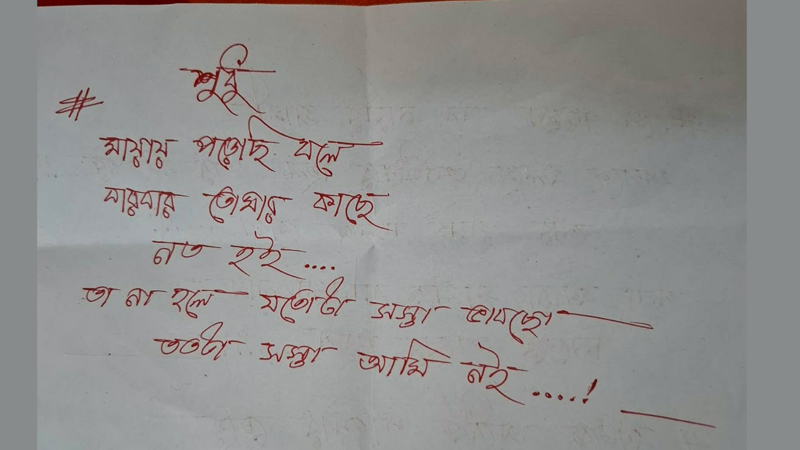 শুধু
# মায়ায় পড়েছি বলে
বারবার তোমার কাছে
নত হই....
তা না হলে যতোটা সস্তা ভাবছো
ততটা সস্তা আমি নই.....!